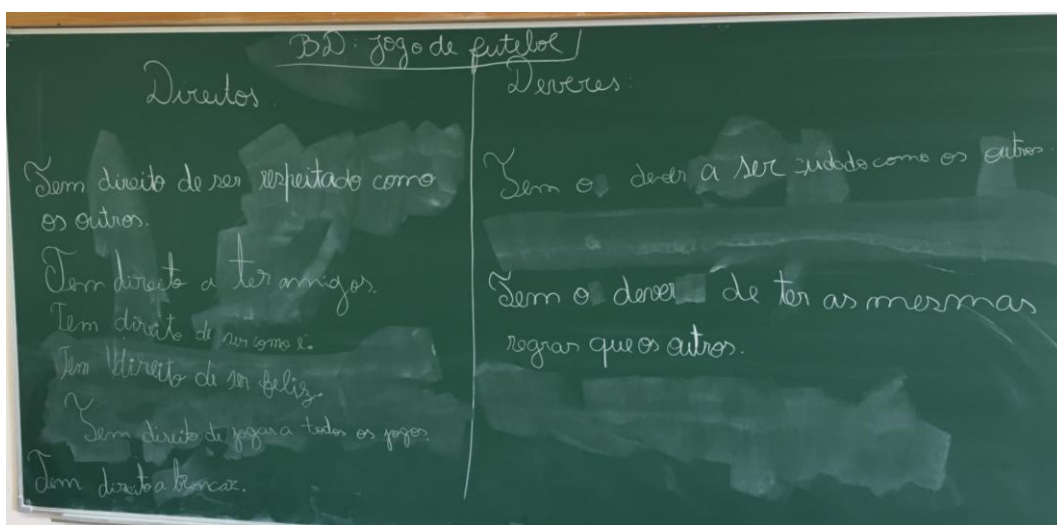 BD: jogo de futebol
Direitos:
Tem direito de ser respeitado como
os outros.
Tem direito a ter amigos.
Tem direito de ser como é.
Tem direito de ser feliz.
Tem direito de jogar a todos os jogos.
Tem direito a brincar.
Deveres:
Tem o dever a ser cuidado como os outros.
Tem o dever de ter as mesmas
regras que os outros.